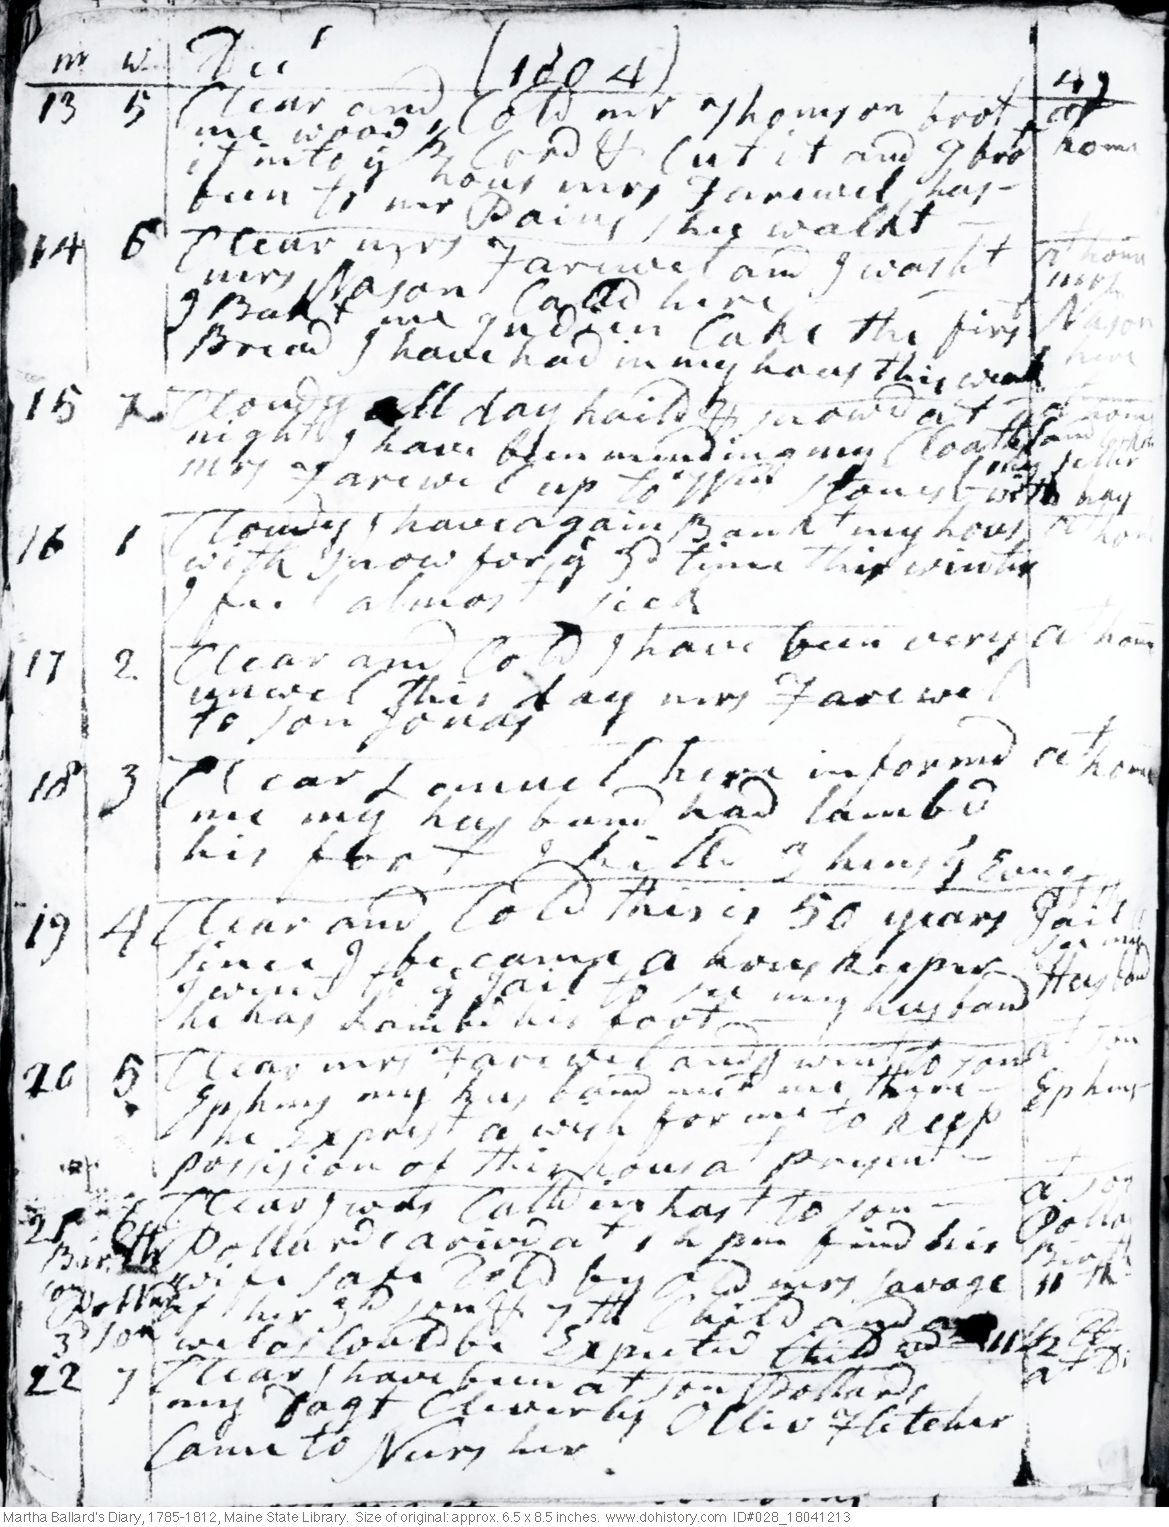 m w Dec (1804) 49
13 5 Clear and Cold mr Thomson brot at
me wood, B Cord & Cut it and I bro home
it into ye hous mrs Farewel has
been to mr Pains she walkt
14 6 Clear mrs Farewel and I washt at home
mrs Nason Calld here mrs
I Bakt me Indien Cake the first Nason
Bread I have had in my hous this week here
15 7 Cloudy all day haild & snowd at at home
night I have been mending my Cloaths
mrs Farewel up to Wm Stones with hay
16 1 Cloudy I have again Bankt my hous at hom
with snow for ye 3d time this winter
I feel almost sick
17 2 Clear and Cold I have been very at home
unwel this day mrs Farewel
to son Jonas
18 3 Clear Lemuel here informd at home
me my husband had lambd
his foot I killd 2 hens ys Evng
19 4 Clear and Cold this is 50 years Jail
since I became a hous keeper see my
I went to ye Jail to see my husband Husband
he has lambd his foot
20 5 Clear mrs Farewel and I went to sons at son
Ephms my husband met me there Ephms
he Exprest a wish for me to keep
possision of this hous at present
21 6 Clear I was Calld in hast to son at son
Birth Pollards arivd at 1 h pm find his Pollards
son wife safe Deld by old mrs Savage Birth
Pollards of ther 3d son & 7th Child and 11th
3d son wel as Could be Expected Child wd 11 1/2 lb
22 7 Clear I have been at son Pollards at Do
my Dagt Cleverly Olliv Fletcher
Came to Nurs her
Martha Ballard's Diary, 1785-1812, Maine State Library. Size of original: approx. 6.5 x 8.5 inches. www.dohistory.com ID#028_18041213